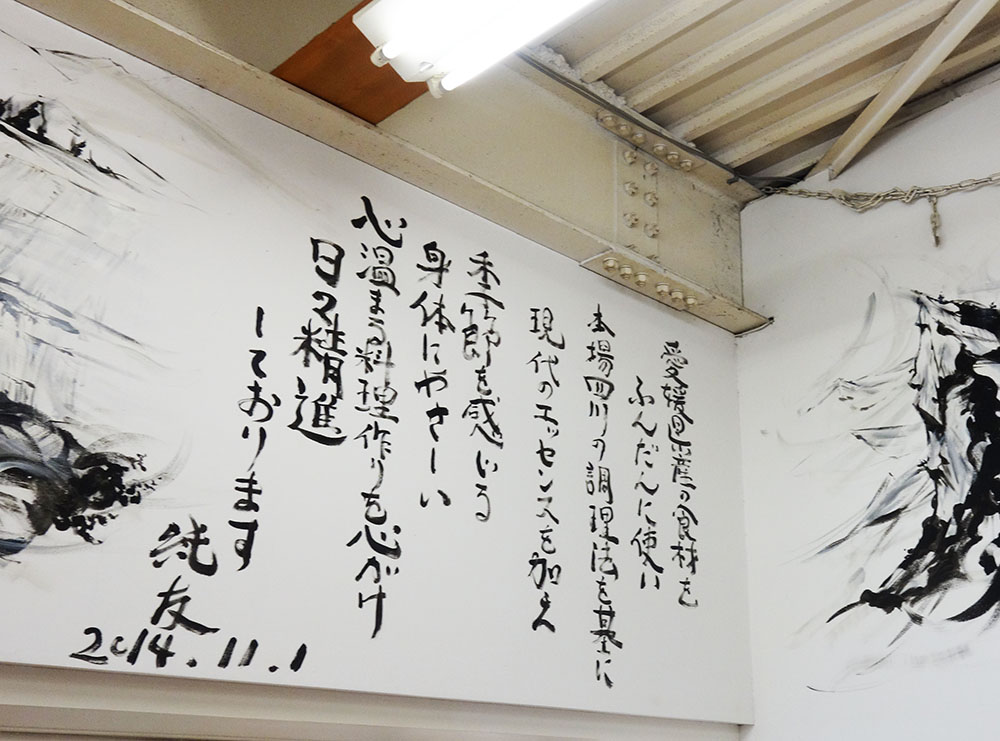 愛媛県産の食材を
ふんだんに使い
本場四川の調理法を基に
現代のエッセンスを加え
季節を感じる
身体にやさしい
心温まる料理作りを心がけ
日々精進
しております
純友
2014.11.1